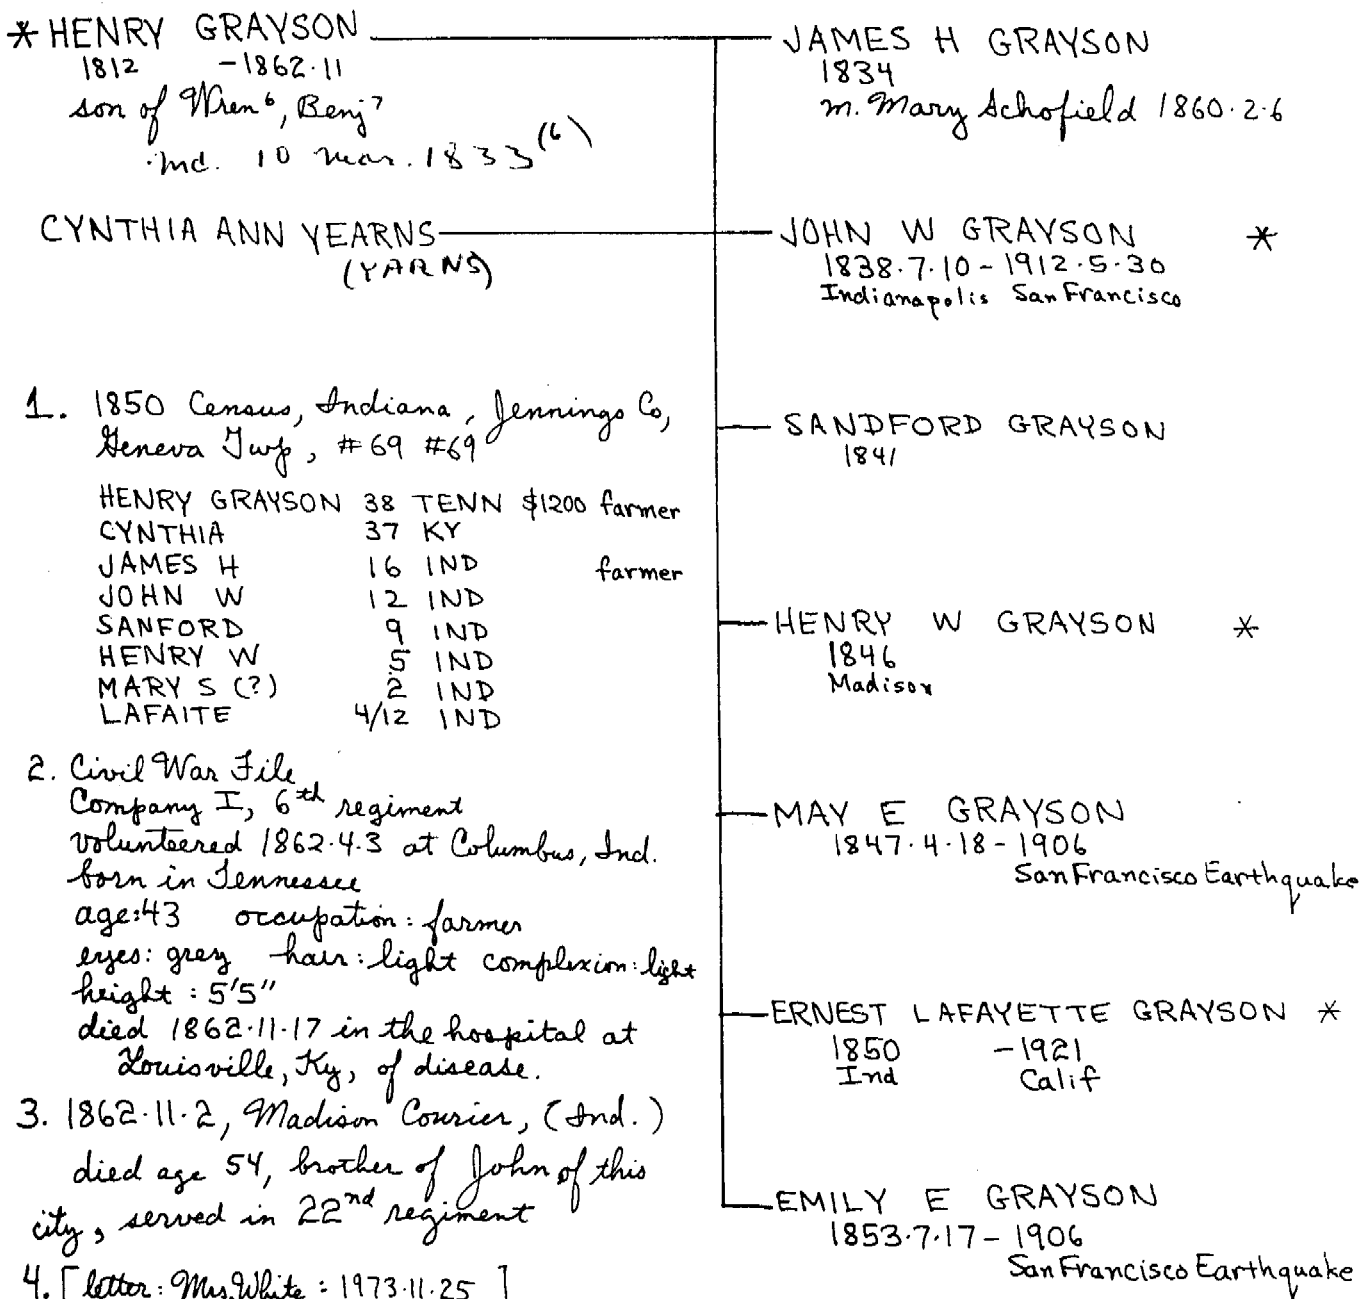 * HENRY GRAYSON
1812 - 1862·11
son of Wren⁶, Benj⁷
md. 10 mar. 1833 (6)
CYNTHIA ANN YEARNS
(YARNS)
1. 1850 Census, Indiana, Jennings Co,
Geneva Twp, #69 #69
HENRY GRAYSON 38 TENN $1200 farmer
CYNTHIA 37 KY
JAMES H 16 IND farmer
JOHN W 12 IND
SANFORD 9 IND
HENRY W 5 IND
MARY S (?) 2 IND
LAFAITE 4/12 IND
2. Civil War File
Company I, 6th regiment
volunteered 1862·4·3 at Columbus, Ind.
born in Tennessee
age:43 occupation: farmer
eyes: grey hair: light complexion: light
height: 5'5"
died 1862·11·17 in the hospital at
Louisville, Ky, of disease.
3. 1862·11·2, Madison Courier, (Ind.)
died age 54, brother of John of this
city, served in 22nd regiment
4. [letter: Mrs. White: 1973·11·25]
JAMES H GRAYSON
1834
m. Mary Schofield 1860·2·6
JOHN W GRAYSON *
1838·7·10 - 1912·5·30
Indianapolis San Francisco
SANDFORD GRAYSON
1841
HENRY W GRAYSON *
1846
Madison
MAY E GRAYSON
1847·4·18 - 1906
San Francisco Earthquake
ERNEST LAFAYETTE GRAYSON *
1850 - 1921
Ind Calif
EMILY E GRAYSON
1853·7·17 - 1906
San Francisco Earthquake